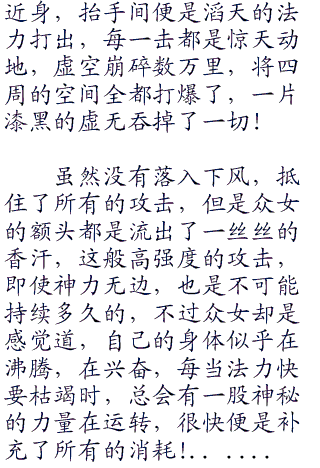 近身，抬手间便是滔天的法
力打出，每一击都是惊天动
地，虚空崩碎数万里，将四
周的空间全都打爆了，一片
漆黑的虚无吞掉了一切！
虽然没有落入下风，抵
住了所有的攻击，但是众女
的额头都是流出了一丝丝的
香汗，这般高强度的攻击，
即使神力无边，也是不可能
持续多久的，不过众女却是
感觉道，自己的身体似乎在
沸腾，在兴奋，每当法力快
要枯竭时，总会有一股神秘
的力量在运转，很快便是补
充了所有的消耗!．．．．．．